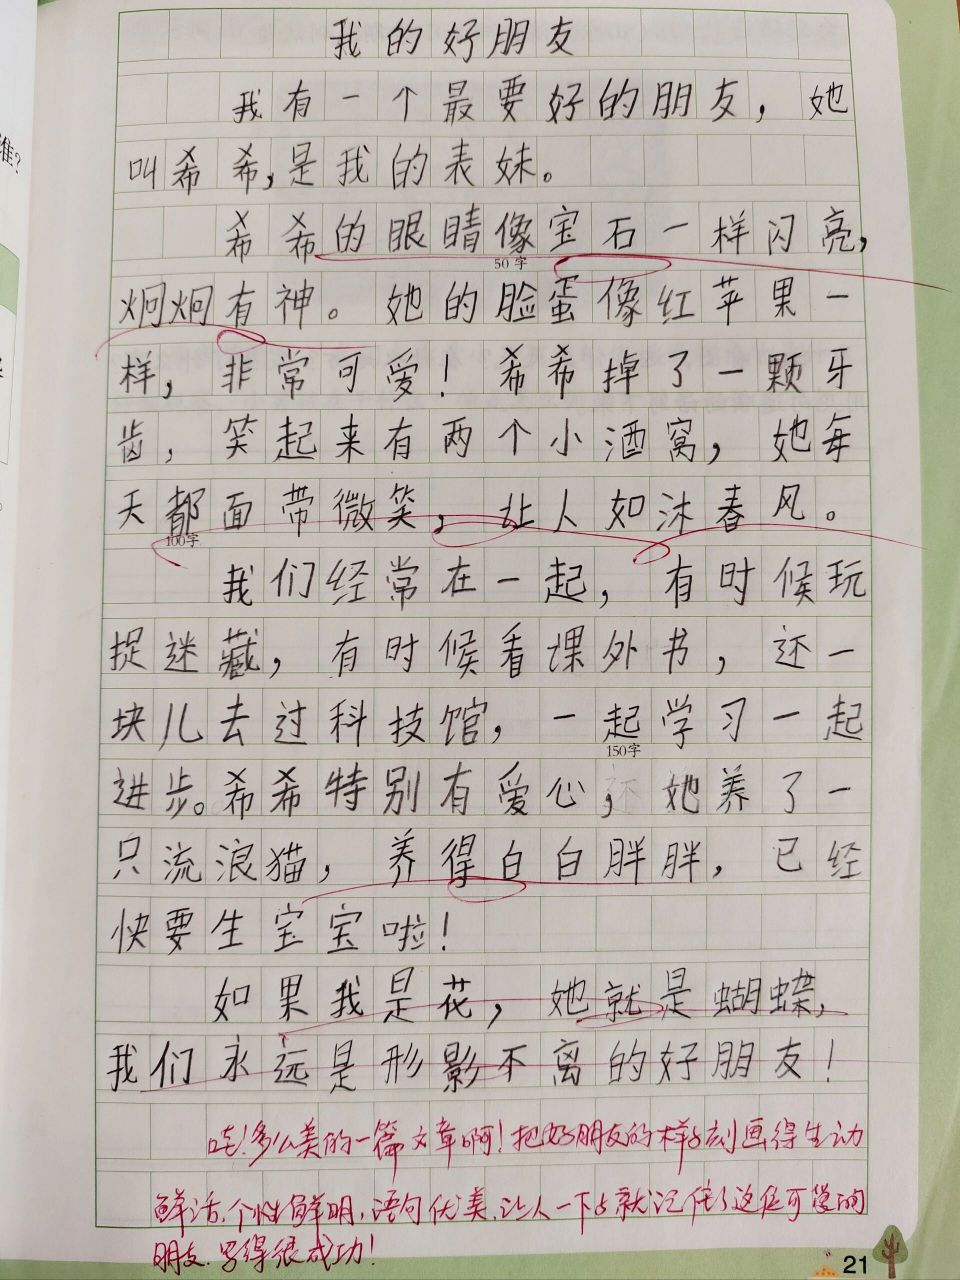 我的好朋友
我有一个最要好的朋友，她
叫希希，是我的表妹。
希希的眼睛像宝石一样闪亮，
50字
炯炯有神。她的脸蛋像红苹果一
样，非常可爱！希希掉了一颗牙
齿，笑起来有两个小酒窝，她每
天都面带微笑，让人如沐春风。
100字
我们经常在一起，有时候玩
捉迷藏，有时候看课外书，还一
块儿去过科技馆，一起学习一起
150字
进步。希希特别有爱心，她养了一
只流浪猫，养得白白胖胖，已经
快要生宝宝啦！
如果我是花，她就是蝴蝶，
我们永远是形影不离的好朋友！
哇！多么美的一篇文章啊！把好朋友的样子刻画得生动
鲜活，个性鲜明，语句优美，让人一下子就记住了这位可爱的
朋友.写得很成功！
21